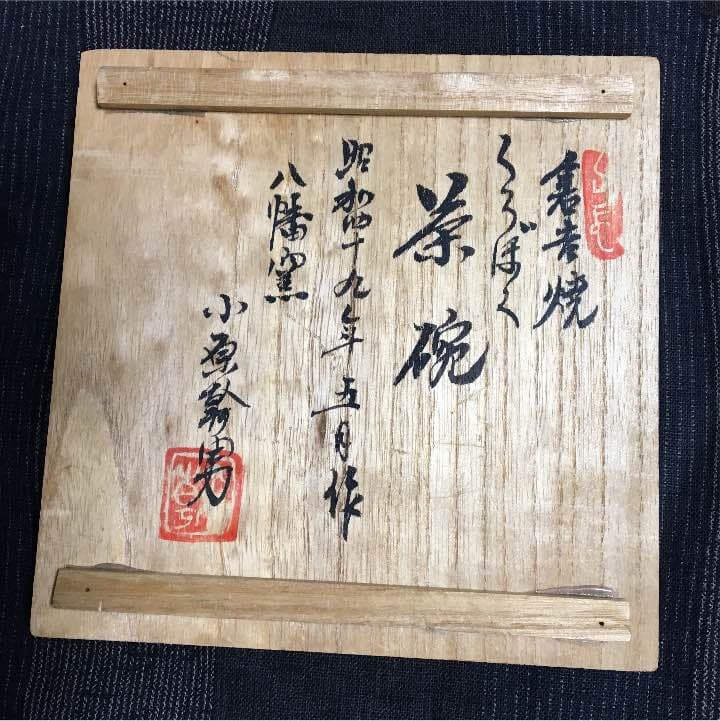 倉吉焼
くろぼく
茶碗
昭和四十九年五月作
八幡窯
小原
男